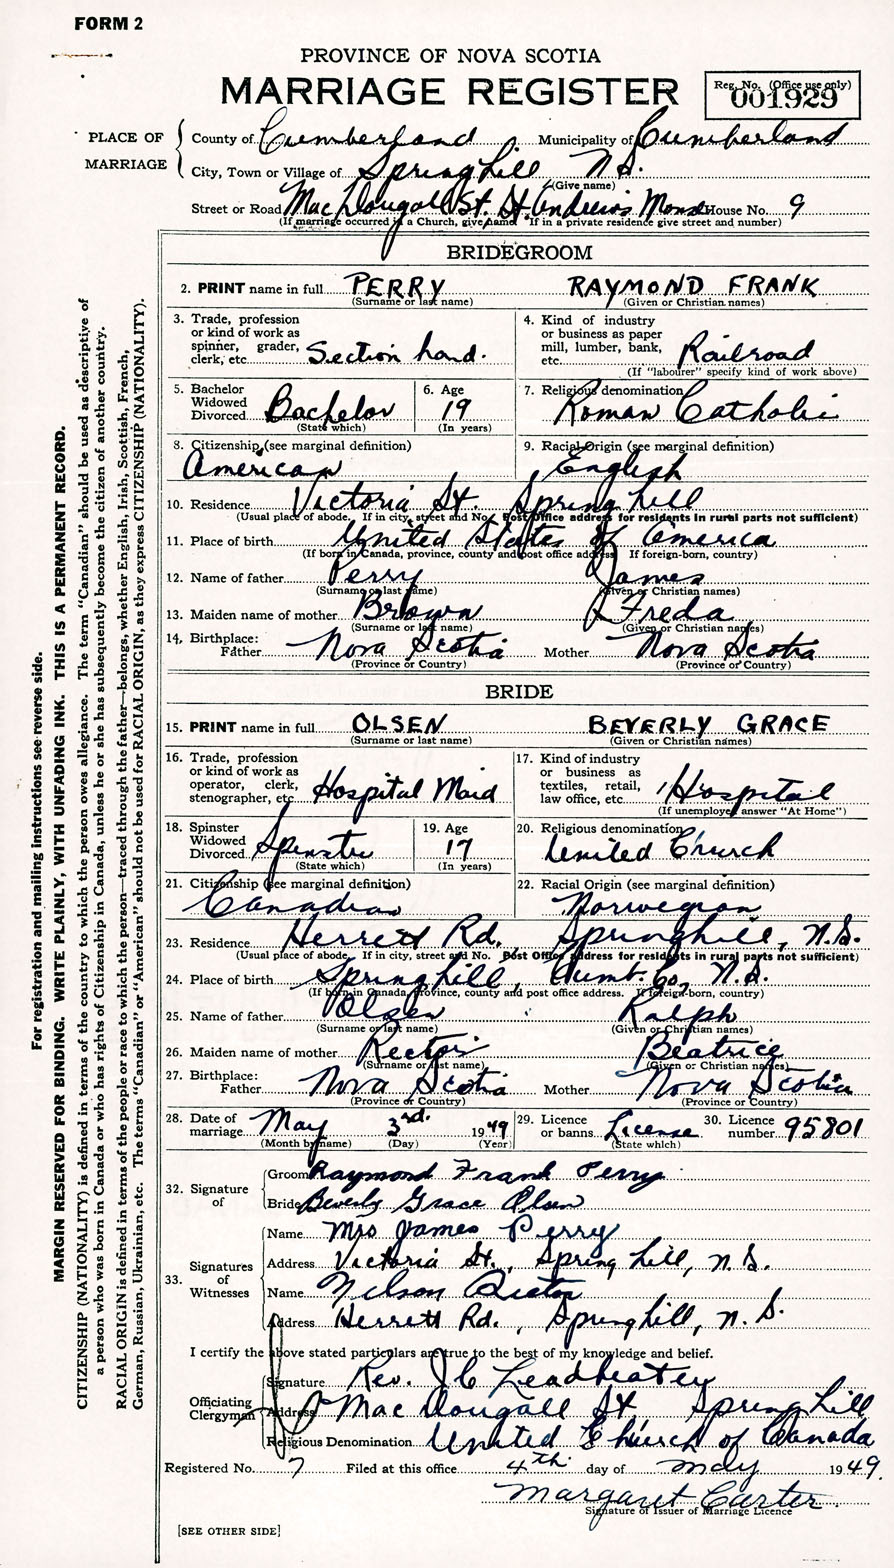 FORM 2
PROVINCE OF NOVA SCOTIA
MARRIAGE REGISTER
Reg. No. (Office use only)
001929
PLACE OF MARRIAGE
County of Cumberland Municipality of Cumberland
City, Town or Village of Springhill N.S.
(Give name)
Street or Road MacDougall St. St. Andrews Manse House No. 9
(If marriage occurred in a Church, give name. If in a private residence give street and number)
BRIDEGROOM
2. PRINT name in full PERRY RAYMOND FRANK
(Surname or last name) (Given or Christian names)
3. Trade, profession or kind of work as spinner, grader, clerk, etc. Section hand.
4. Kind of industry or business as paper mill, lumber, bank, etc. Railroad
(If "labourer" specify kind of work above)
5. Bachelor Widowed Divorced Bachelor
(State which)
6. Age 19
(In years)
7. Religious denomination Roman Catholic
8. Citizenship (see marginal definition) American
9. Racial Origin (see marginal definition) English
10. Residence Victoria St. Springhill
(Usual place of abode. If in city, street and No. Post Office address for residents in rural parts not sufficient)
11. Place of birth United States of America
(If born in Canada, province, county and post office address. If foreign-born, country)
12. Name of father Perry James
(Surname or last name) (Given or Christian names)
13. Maiden name of mother Brown Freda
(Surname or last name) (Given or Christian names)
14. Birthplace: Father Nova Scotia Mother Nova Scotia
(Province or Country) (Province or Country)
BRIDE
15. PRINT name in full OLSEN BEVERLY GRACE
(Surname or last name) (Given or Christian names)
16. Trade, profession or kind of work as operator, clerk, stenographer, etc. Hospital Maid
17. Kind of industry or business as textiles, retail, law office, etc. Hospital
(If unemployed answer "At Home")
18. Spinster Widowed Divorced Spinster
(State which)
19. Age 17
(In years)
20. Religious denomination United Church
21. Citizenship (see marginal definition) Canadian
22. Racial Origin (see marginal definition) Norwegian
23. Residence Herrett Rd. Springhill, N.S.
(Usual place of abode. If in city, street and No. Post Office address for residents in rural parts not sufficient)
24. Place of birth Springhill, Cumb. Co, N.S.
(If born in Canada, province, county and post office address. If foreign-born, country)
25. Name of father Olsen Ralph
(Surname or last name) (Given or Christian names)
26. Maiden name of mother Rector Beatrice
(Surname or last name) (Given or Christian names)
27. Birthplace: Father Nova Scotia Mother Nova Scotia
(Province or Country) (Province or Country)
28. Date of marriage May 3rd. 1949
(Month by name) (Day) (Year)
29. Licence or banns License
(State which)
30. Licence number 95801
32. Signature of
Groom Raymond Frank Perry
Bride Beverly Grace Olsen
33. Signatures of Witnesses
Name Mrs James Perry
Address Victoria St., Springhill, N.S.
Name Nelson
Address Herrett Rd., Springhill, N.S.
I certify the above stated particulars are true to the best of my knowledge and belief.
Officiating Clergyman
Signature Rev. J C Leadbeatey
Address MacDougall St Springhill
Religious Denomination United Church of Canada
Registered No. 7 Filed at this office 4th day of May 1949.
Margaret Carter
Signature of Issuer of Marriage Licence
[SEE OTHER SIDE]
For registration and mailing instructions see reverse side.
MARGIN RESERVED FOR BINDING. WRITE PLAINLY, WITH UNFADING INK. THIS IS A PERMANENT RECORD.
CITIZENSHIP (NATIONALITY) is defined in terms of the country to which the person owes allegiance. The term "Canadian" should be used as descriptive of
a person who was born in Canada or who has rights of Citizenship in Canada, unless he or she has subsequently become the citizen of another country.
RACIAL ORIGIN is defined in terms of the people or race to which the person—traced through the father—belongs, whether English, Irish, Scottish, French,
German, Russian, Ukrainian, etc. The terms "Canadian" or "American" should not be used for RACIAL ORIGIN, as they express CITIZENSHIP (NATIONALITY).